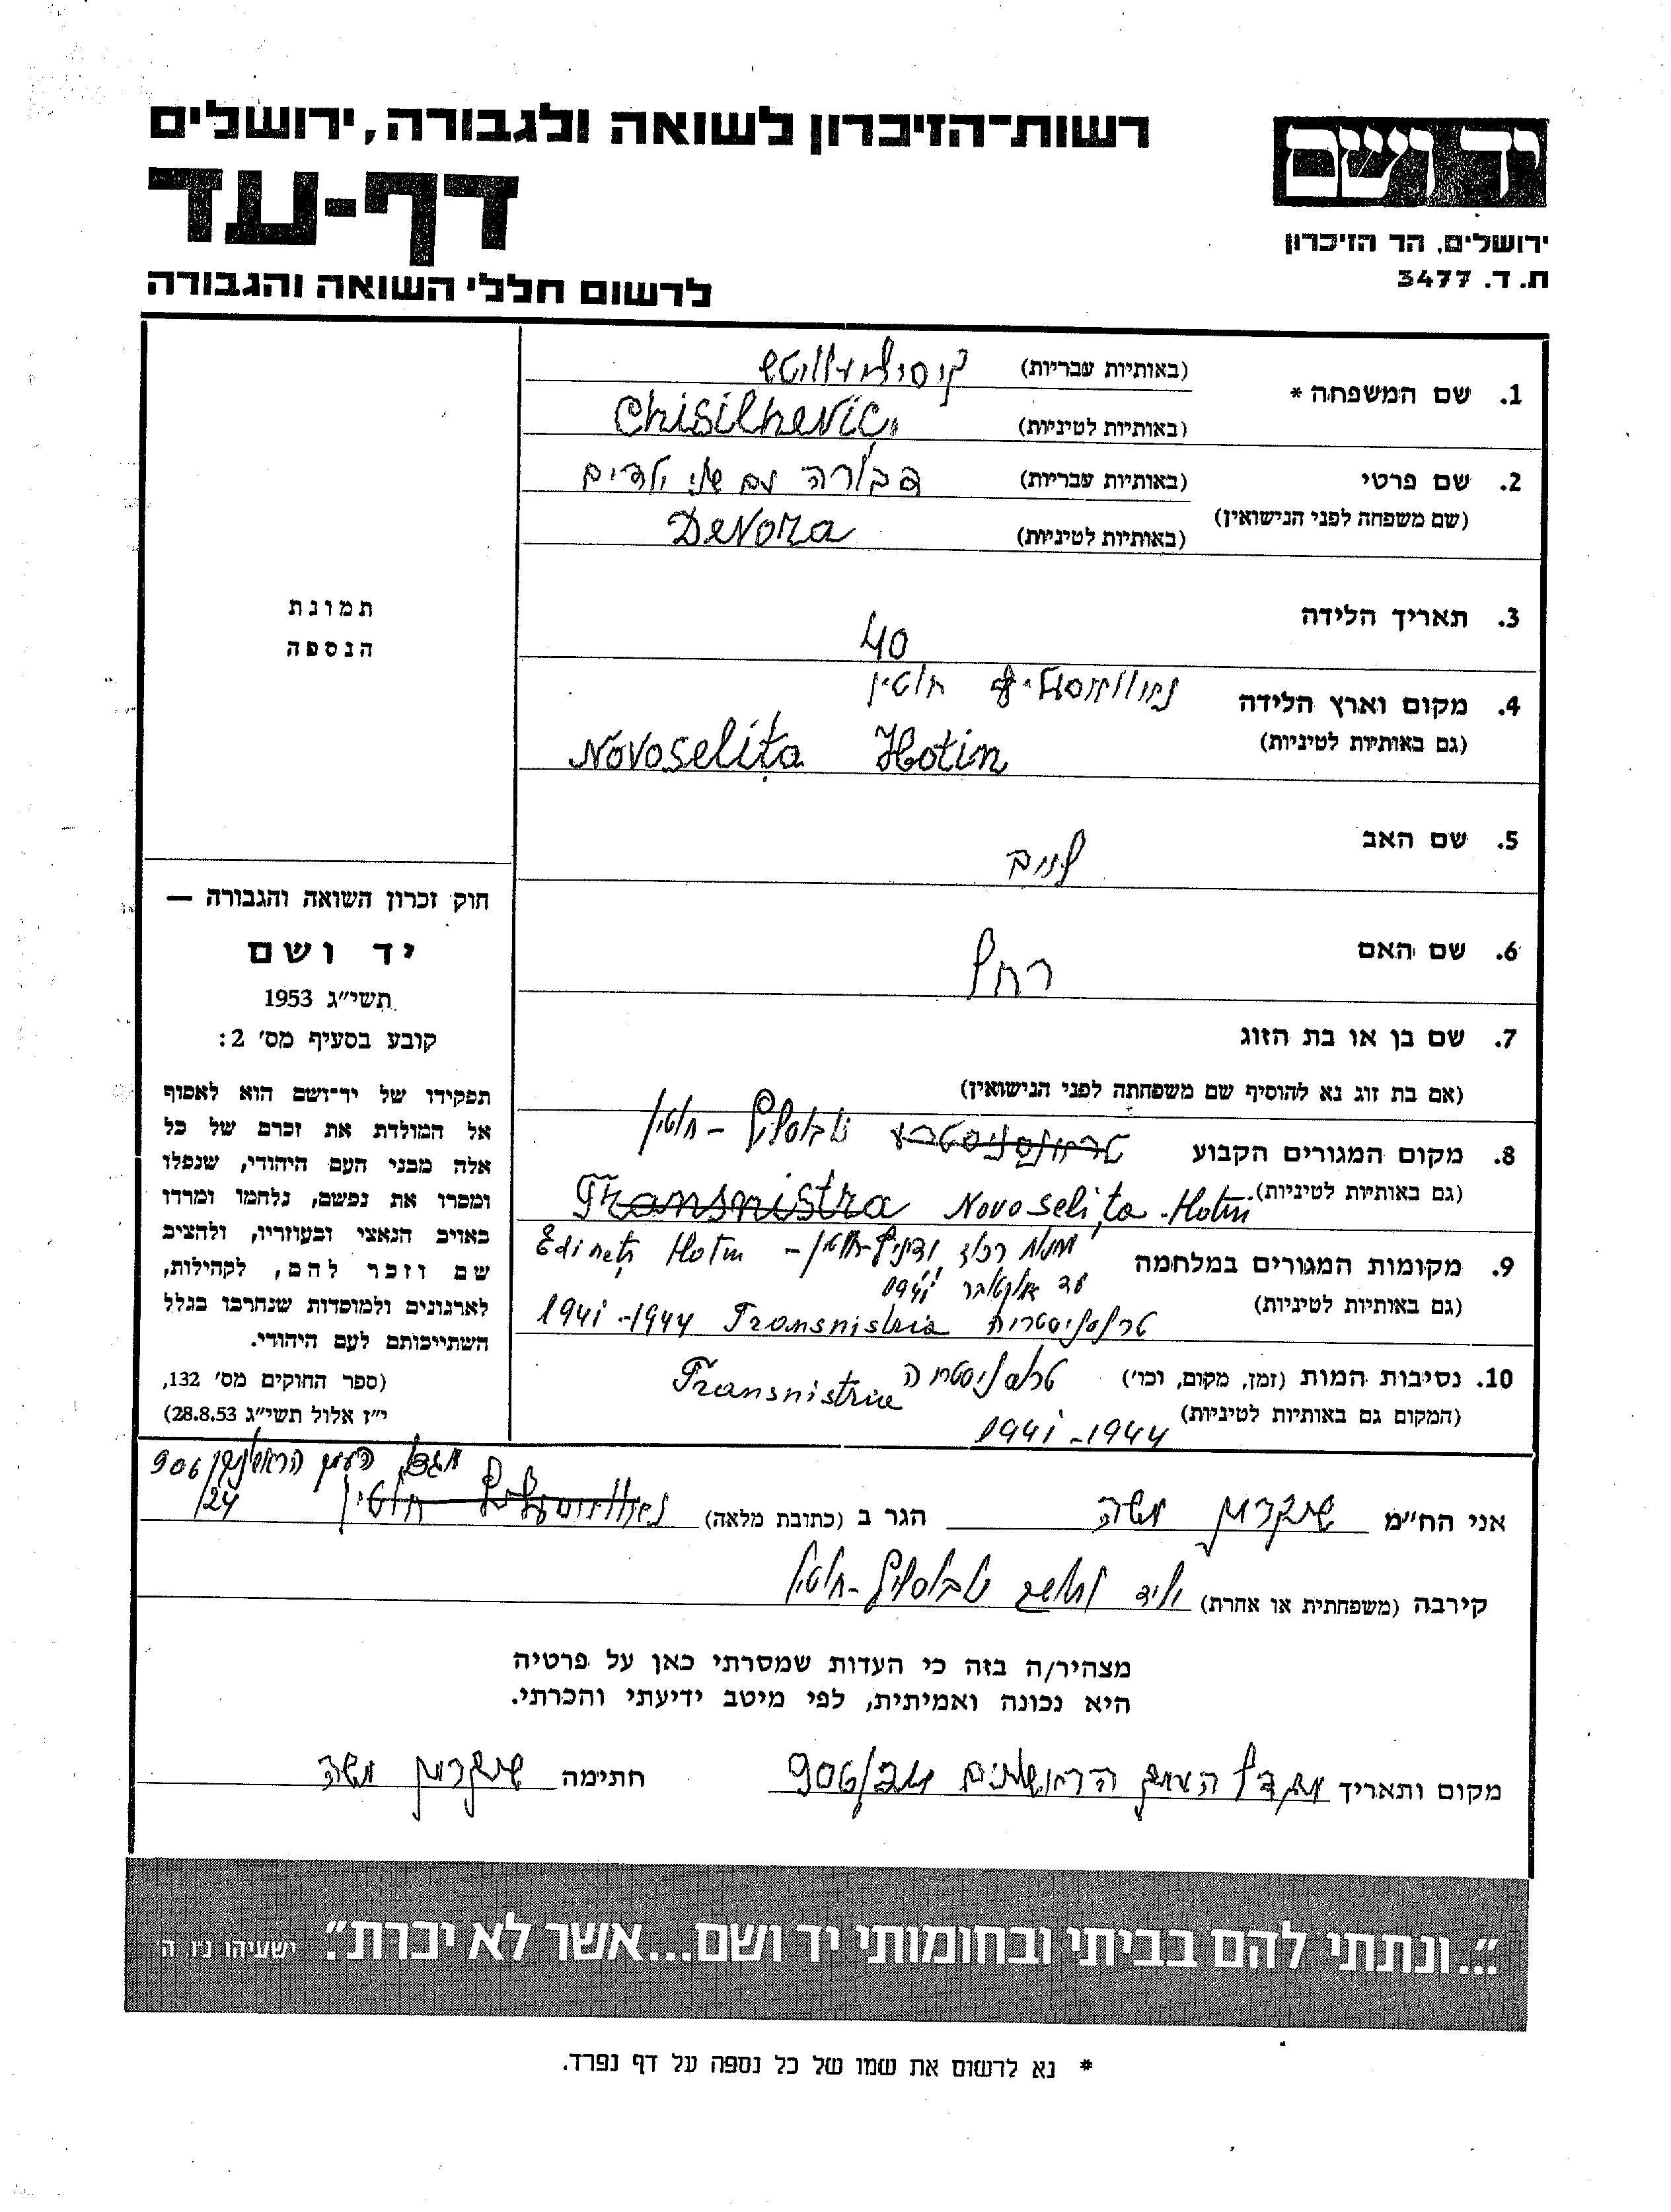 רשות-הזיכרון לשואה ולגבורה, ירושלים
דף-עד
לרשום חללי השואה והגבורה
יד ושם
ירושלים, הר הזיכרון
ת. ד. 3477
1. שם המשפחה * (באותיות עבריות)
(באותיות לטיניות) Chisilhevici
2. שם פרטי (באותיות עבריות) דבורה עם שני ילדים
(שם משפחה לפני הנישואין)
(באותיות לטיניות) Devora
3. תאריך הלידה 40
4. מקום וארץ הלידה חוטין
(גם באותיות לטיניות) Novoselița Hotin
5. שם האב
6. שם האם רחל
7. שם בן או בת הזוג
(אם בת זוג נא להוסיף שם משפחתה לפני הנישואין)
8. מקום המגורים הקבוע
(גם באותיות לטיניות) Transnistra Novoselița - Hotin
9. מקומות המגורים במלחמה Edineț Hotin
עד אוקטובר 1941
(גם באותיות לטיניות) טרנסניסטריה Transnistria 1941-1944
10. נסיבות המות (זמן, מקום, וכו') טרנסניסטריה Transnistria
(המקום גם באותיות לטיניות) 1941-1944
תמונת
הנספה
חוק זכרון השואה והגבורה —
יד ושם
תשי״ג 1953
קובע בסעיף מס׳ 2:
תפקידו של יד־ושם הוא לאסוף
אל המולדת את זכרם של כל
אלה מבני העם היהודי, שנפלו
ומסרו את נפשם, נלחמו ומרדו
באויב הנאצי ובעוזריו, ולהציב
שם וזכר להם, לקהילות,
לארגונים ולמוסדות שנחרבו בגלל
השתייכותם לעם היהודי.
(ספר החוקים מס׳ 132,
י״ז אלול תשי״ג 28.8.53)
מגדל העמק הראשונים 906/24
אני הח״מ שינקרמן משה הגר ב (כתובת מלאה)
קירבה (משפחתית או אחרת) יליד
מצהיר/ה בזה כי העדות שמסרתי כאן על פרטיה
היא נכונה ואמיתית, לפי מיטב ידיעתי והכרתי.
מקום ותאריך מגדל העמק הראשונים 906/24 חתימה שינקרמן משה
״...ונתתי להם בביתי ובחומותי יד ושם...אשר לא יכרת״. ישעיהו נ״ו, ה׳
* נא לרשום את שמו של כל נספה על דף נפרד.